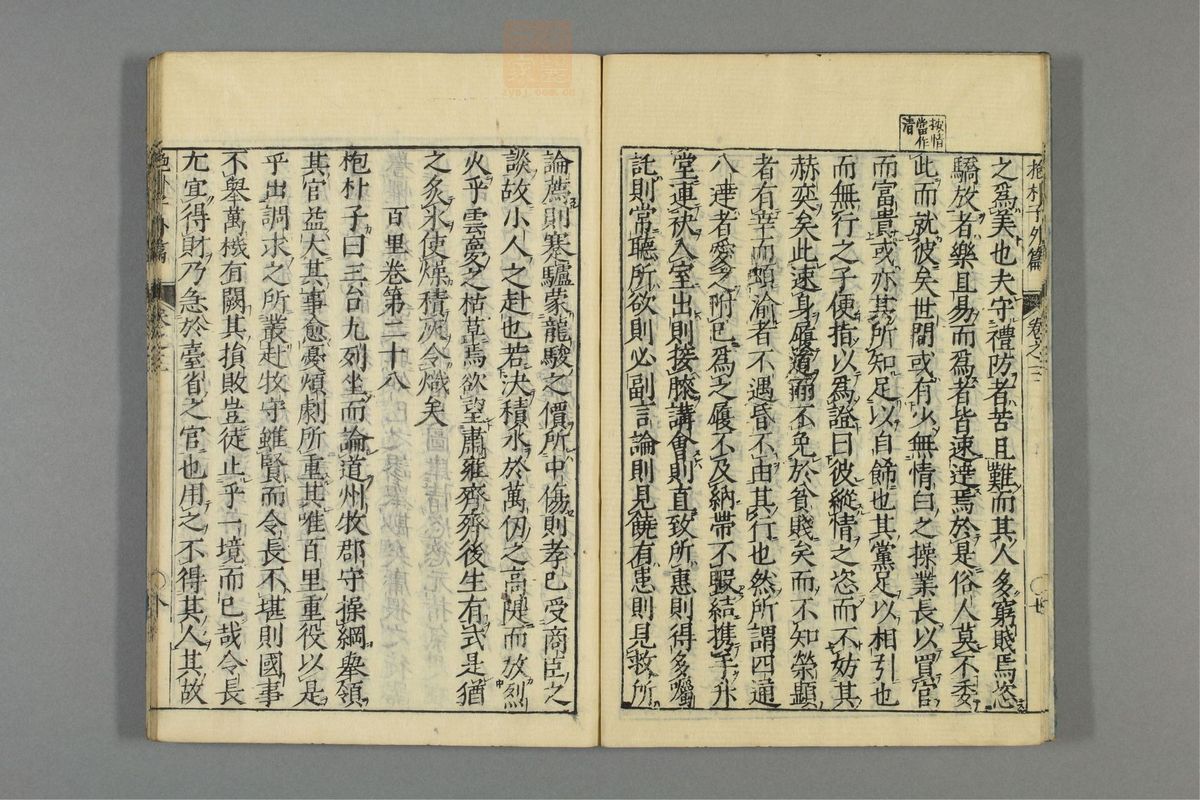 按情
當作
清
抱朴子外篇 卷之三
之爲美也夫守禮防者苦且難而其人多窮賤焉恣
驕放者樂且易而爲者皆速達焉於是俗人莫不委
此而就彼矣世間或有少無情白之操業長以買官
而富貴或亦其所知足以自飾也其黨足以相引也
而無行之子便指以爲證曰彼縱情之恣而不妨其
赫奕矣此速身履道而不免於貧賤矣而不知榮顯
者有幸而頓淪者不遇昏不由其行也然所謂四通
八達者愛之附已爲之履不及納帶不暇結携手升
堂連袂入室出則接膝講會則直致所惠則得多囑
託則常聽所欲則必副言論則見饒有患則見救所
論薦則蹇驢蒙龍駿之價所中傷則孝已受商臣之
談故小人之赴也若決積水於萬仞之高隄而放烈
火乎雲夢之枯草焉欲望肅雍齊齊後生有式是猶
之炙氷使燥積灰令熾矣
百里卷第二十八
抱朴子曰三台九列坐而論道州牧郡守操綱舉領
其官益大其事愈憂煩劇所重其唯百里重役以是
乎出調求之所叢赴牧守雖賢而令長不堪則國事
不舉萬機有闕其損敗豈徒止乎一境而已哉令長
尤宜得財乃急於臺省之官也用之不得其人其故